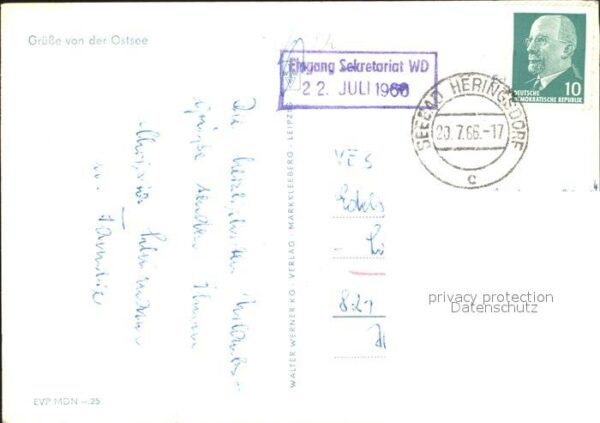 Grüße von der Ostsee
Eingang Sekretariat WD
22. JULI 1966
SEEBAD HERINGSDORF
20.7.66.-17
c
10
DEUTSCHE
DEMOKRATISCHE REPUBLIK
Die herzlichsten Urlaubs-
grüße senden Ihnen
u. Familie
WALTER WERNER KG · VERLAG · MARKKLEEBERG - LEIPZIG
821
privacy protection
Datenschutz
EVP MDN -.25